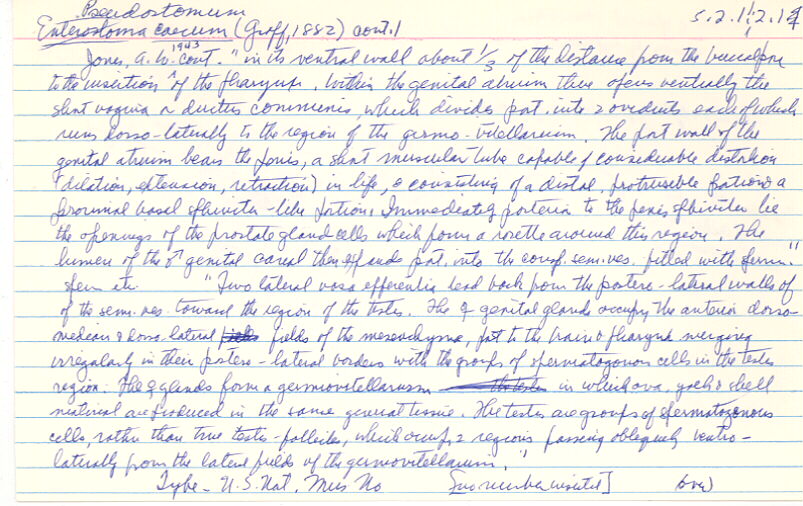 Pseudostomum 5.2.1.2.14
Enterostoma caecum (Graff, 1882) cont.
Jones, A.W. 1943 cont. "in its ventral wall about 1/3 of the distance from the buccal pore
to the insertion of the pharynx. Within the genital atrium there opens ventrally the
short vagina or ductus communis, which divides post. into 2 oviducts each of which
runs dorso-laterally to the region of the germo-vitellarium. The post wall of the
genital atrium bears the penis, a short muscular tube capable of considerable distortion
(dilation, extension, retraction) in life, & consisting of a distal, protrusible portion & a
proximal basal sphincter-like portion. Immediately posterior to the penis sphincter lie
the openings of the prostate gland cells which form a rosette around this region. The
lumen of the ♂ genital canal then expands post. into the sem. ves. filled with sperm."
"Two lateral vasa efferentia lead back from the postero-lateral walls of
of the sem. ves. toward the region of the testes. The ♀ genital glands occupy the anterior dorso-
median & dorso-lateral fields of the mesenchyma, post to the brain & pharynx merging
irregularly in their postero-lateral borders with the groups of spermatogonous cells in the testes
region. The ♀ glands form a germovitellarium in which ova, yolk & shell
material are produced in the same general tissue. The testes are groups of spermatogonous
cells, rather than true testes-follicles, which occupy 2 regions passing obliquely ventro-
laterally from the lateral fields of the germovitellarium."
Type - U.S. Nat. Mus No [no number inserted] over)